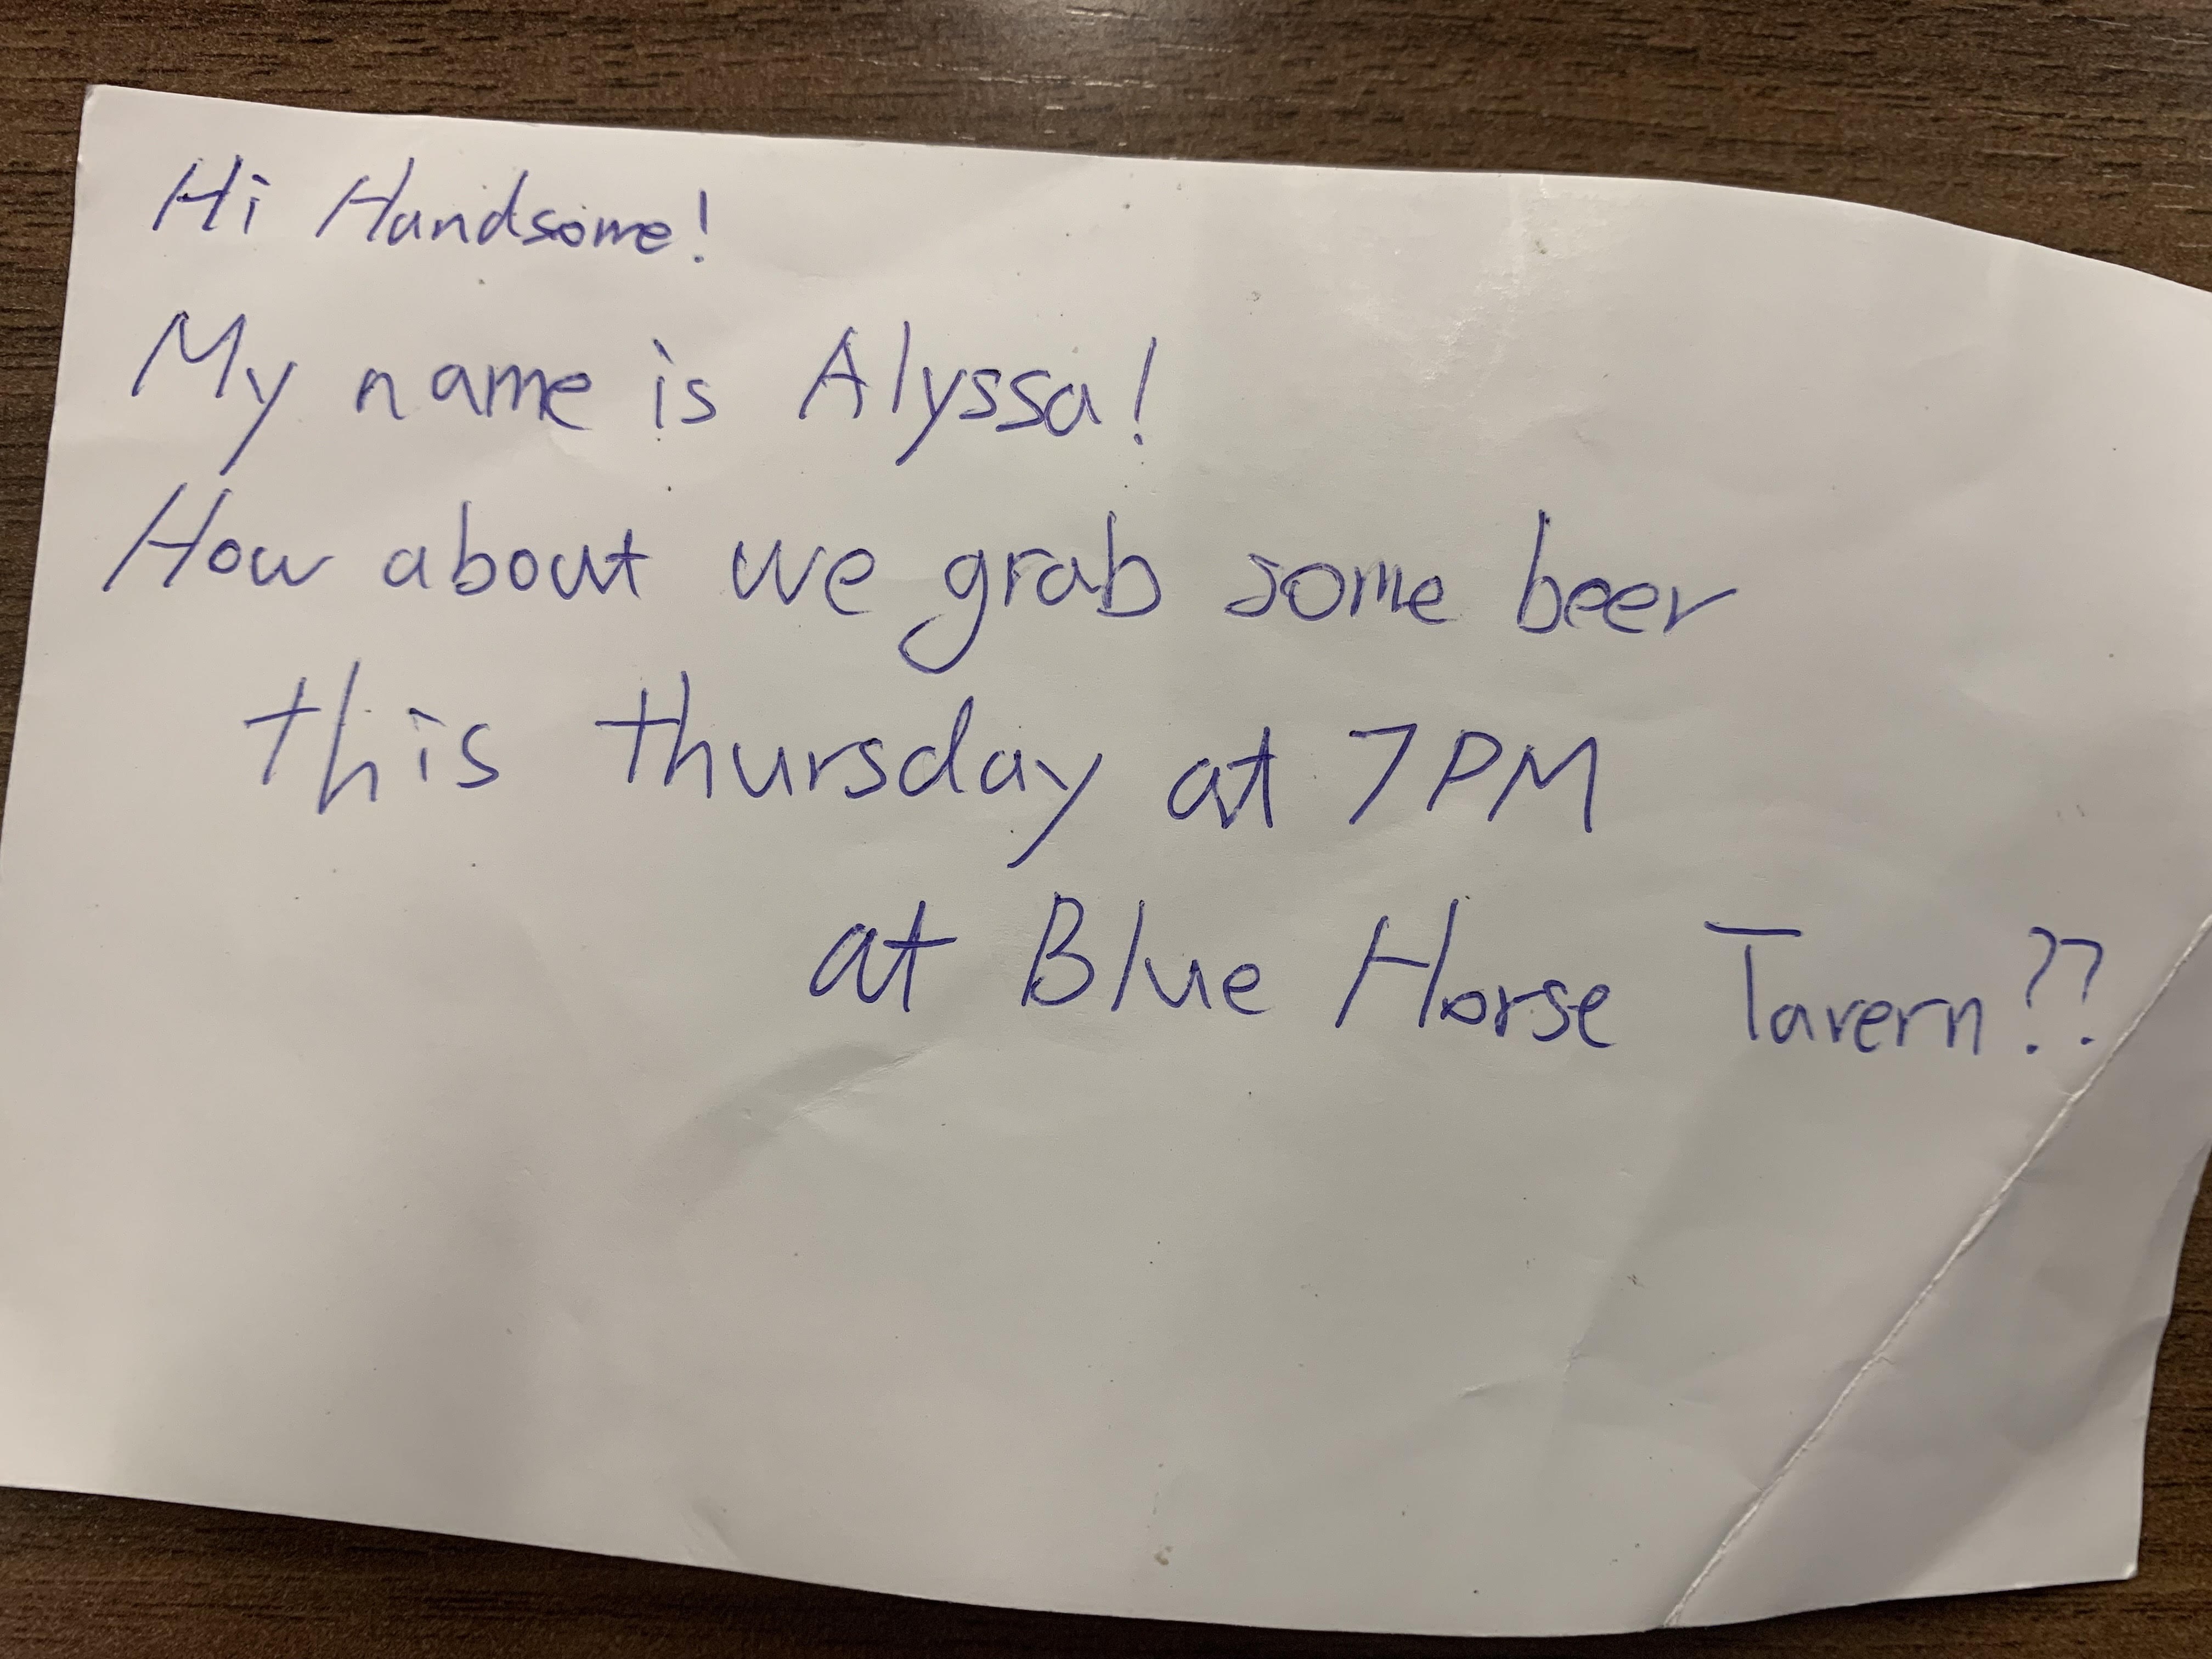 Hi Handsome!
My name is Alyssa!
How about we grab some beer
this thursday at 7PM
at Blue Horse Tavern??